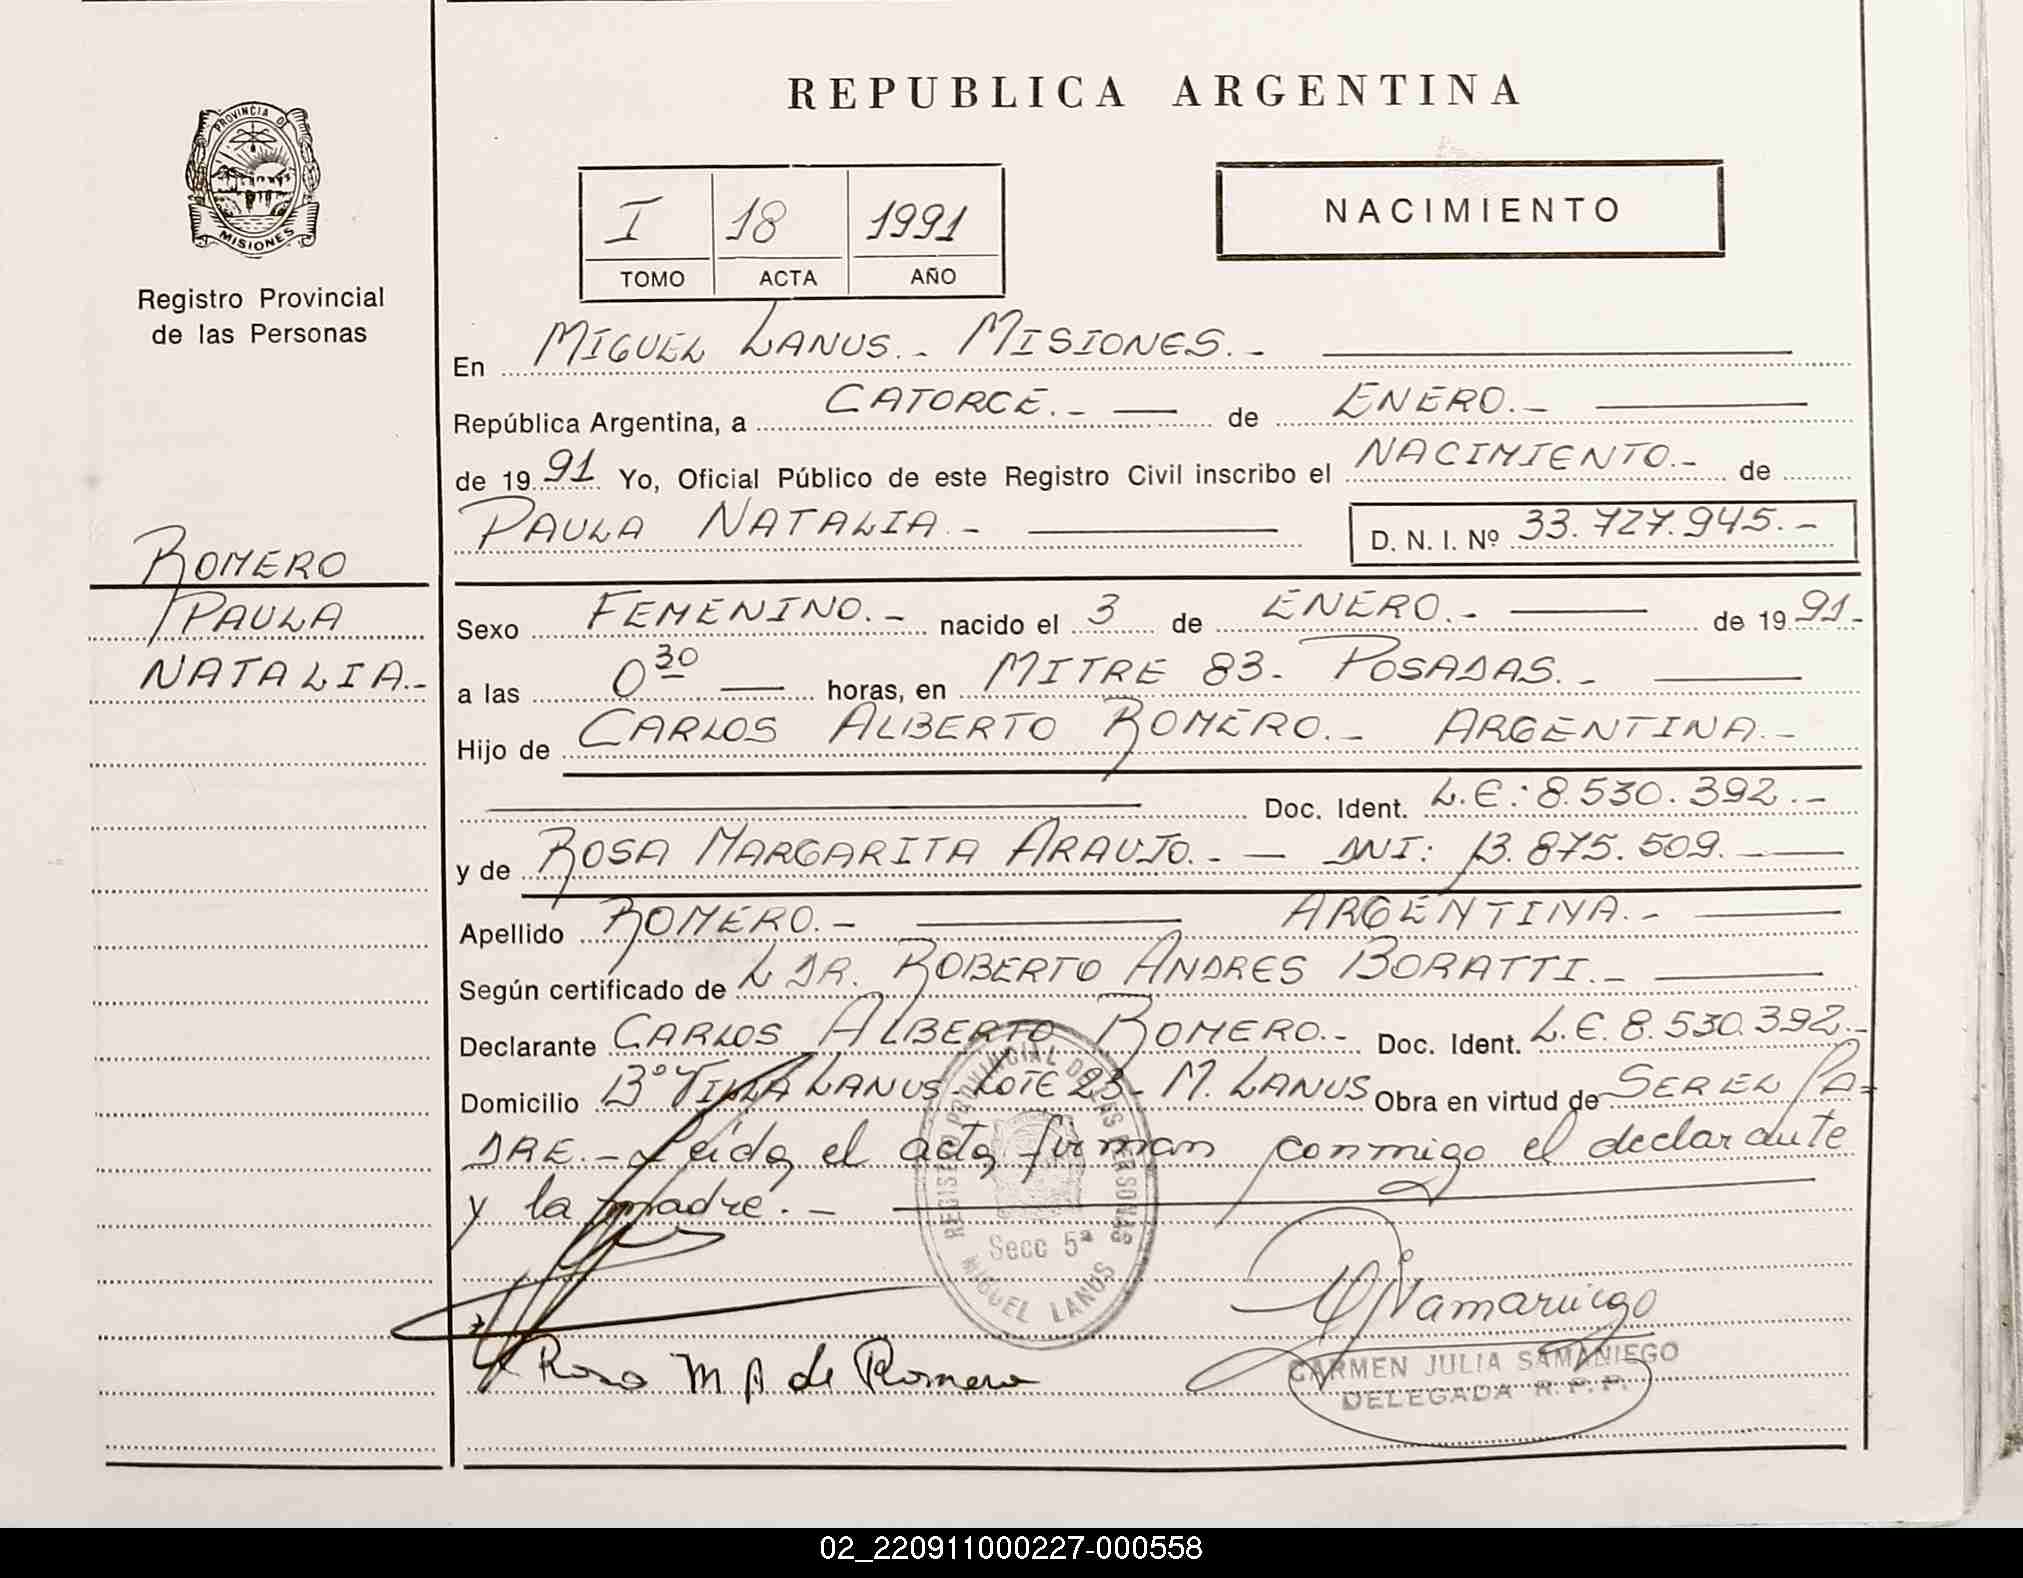 PROVINCIA D
MISIONES
Registro Provincial
de las Personas
ROMERO
PAULA
NATALIA.-
REPUBLICA ARGENTINA
I 18 1991
TOMO ACTA AÑO
NACIMIENTO
En MIGUEL LANUS.- MISIONES.-
República Argentina, a CATORCE.- de ENERO.-
de 1991 Yo, Oficial Público de este Registro Civil inscribo el NACIMIENTO.- de
PAULA NATALIA.- D. N. I. Nº 33.727.945.-
Sexo FEMENINO.- nacido el 3 de ENERO.- de 1991.-
a las 0 30 horas, en MITRE 83.- POSADAS.-
Hijo de CARLOS ALBERTO ROMERO.- ARGENTINA.-
Doc. Ident. L.E.: 8.530.392.-
y de ROSA MARGARITA ARAUJO.- DNI: 13.875.509.-
Apellido ROMERO.- ARGENTINA.-
Según certificado de L DR. ROBERTO ANDRES BORATTI.-
Declarante CARLOS ALBERTO ROMERO.- Doc. Ident. L.E. 8.530.392.-
Domicilio Bº VILLA LANUS- LOTE 23- M. LANUS Obra en virtud de SER EL PA=
DRE.- Leída el acta firman conmigo el declarante
y la madre.-
REGISTRO PROVINCIAL DE LAS PERSONAS
Secc 5ª
MIGUEL LANUS
Rosa M A de Romero
CARMEN JULIA SAMANIEGO
DELEGADA R.P.P.
02_220911000227-000558